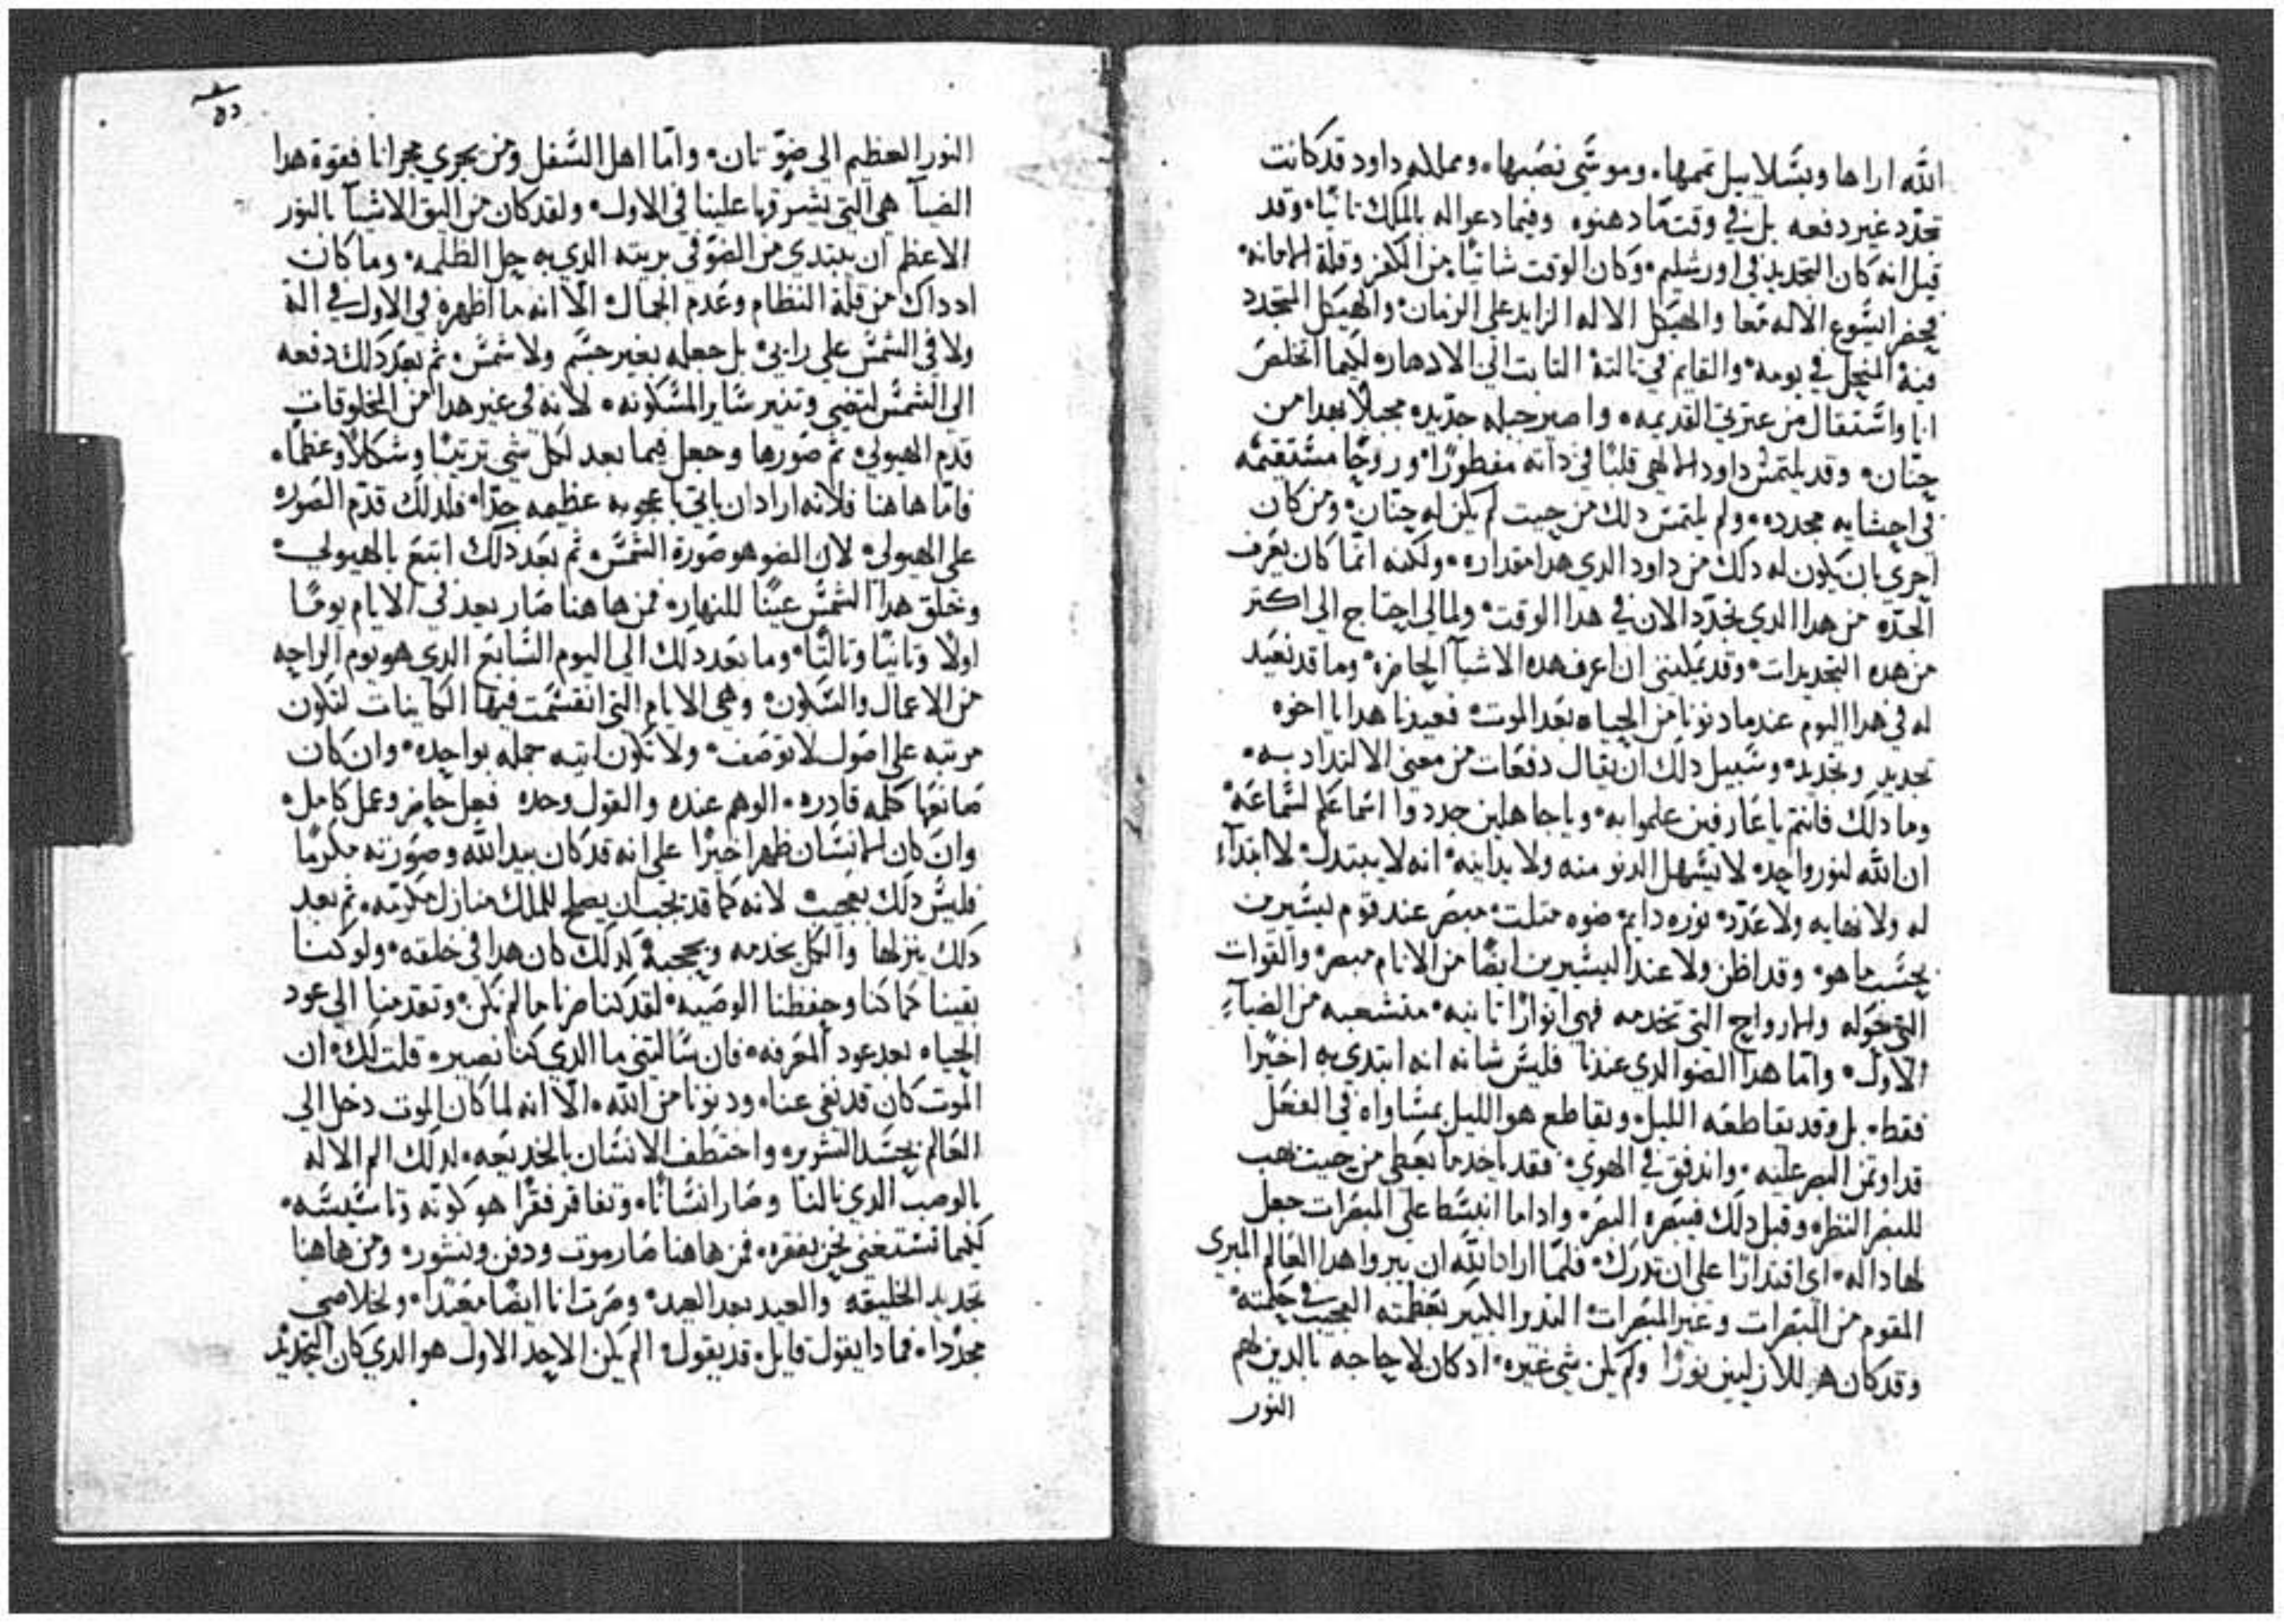 الله اراها وبسلاييل تممها. وموسي نصبها. ومملكه داود قد كانت
تجدد غير دفعه بل في وقت ما دهنوه وفيما دعوا له بالملك تانيا. وقد
قيل انه كان التجديد في اورشليم. وكان الوقت شاتيا من الكفر وقلة الامانه.
فحضر ايسوع الاله معا والهيكل الاله الزايد علي الزمان. والهيكل المتجدد
فيه المنحل في يومه. والقايم في تالته التابت الي الادهار. لكيما اتخلص
انا واستقال من عترتي القديمه. واصير جبله جديده مجبلا بعد من
حنان. وقد يلتمس داود الالهي قلبا في داته مفطورا. وروحا مستقيمه
في احشايه مجدده. ولم يلتمس دلك من حيت لم يكن له حنان. ومن كان
احري بان يكون له دلك من داود الدي هدا مقداره. ولكنه انما كان يعرف
الحده من هدا الدي يجدد الان في هدا الوقت. ولما لي احتاج الي اكتر
من هده التجديدات. وقد يمكنني ان اعرف هده الاشيآ الحاضره. وما قد نعيد
له في هدا اليوم عندما دنونا من الحياه بعد الموت. فعيدنا هدا يا اخوه
تجديد وتجديد. وسبيل دلك ان يقال دفعات من معني الالتداد به.
وما دلك فانتم يا عارفين علموا به. ويا جاهلين جددوا اسماعكم لسماعه.
ان الله لنور واحد. لا يسهل الدنو منه ولا يدانيه. انه لا يبتدل لا ابتدآء
له ولا نهايه ولا عدد. نوره دايم ضوه متلت. مبصر عند قوم ليسيرين
بحسب ما هو. وقد اظن ولا عند اليسيرين ايضا من الانام مبصر. والقوات
التي حوله والارواح التي تخدمه فهي انوارا تانيه. متشعبه من الضيآء
الاول. واما هدا الضو الدي عندنا فليس شانه انه ابتدي به اخيرا
فقط. بل وقد يقاطعه الليل. ويقاطع هو الليل بمساواه في الفعل
قد اوتمن البصر عليه. واندفق في الهوي. فقد ياخد ما يعطي من حيت يهب
للبصر النظر. وقبل دلك فيبصره البصر. وادا ما انبسط علي المبصرات جعل
لها داله. اي اقتدارا علي ان تدرك. فلما اراد الله ان يبروا هدا العالم المبري
المقوم من المبصرات وغير المبصرات. الندر الكبير بعظمته العجيب في حكمته.
وقد كان هو للازليين نورا ولم يكن شي غيره. اد كان لا حاجه بالدين لهم
النور
النور العظيم الي ضو تان. واما اهل السفل ومن يجري مجرانا فقوة هدا
الضيآ هي التي يشرقها علينا في الاول. ولقد كان من اليق الاشيآ بالنور
الاعظم ان يبتدي من الضو في بريته الدي به حل الظلمه. وما كان
اد داك من قلة النظام وعدم الجمال. الا انه ما اظهره في الاول في الة
ولا في الشمس علي رايي. بل جعله بغير جسم ولا شمس. تم بعد دلك دفعه
الي الشمس لتضي وتنير ساير المسكونه. لانه في غير هدا من المخلوقات
قدم الهيولي. تم صورها وجعل فيما بعد لكل شي ترتيبا وشكلا وعظما.
فاما هاهنا فلانه اراد ان ياتي باعجوبه عظيمه جدا. فلدلك قدم الصوره
علي الهيولي. لان الضو هو صورة الشمس. تم بعد دلك اتبع بالهيولي.
وخلق هدا الشمس عينا للنهار. فمن هاهنا صار يعد في الايام يوما
اولا وتانيا وتالتا. وما بعد دلك الي اليوم السابع الدي هو يوم الراحه
من الاعمال والسكون. وهي الايام التي انقسمت فيها الكاينات لتكون
مرتبه علي اصول لا توصف. ولا تكون اتيه جمله بواحده. وان كان
صانعها كلمه قادره. الوهم عنده والقول وحده فعل حاضر وعمل كامل.
وان كان الانسان ظهر اخيرا علي انه قد كان بيد الله وصورته مكرما
فليس دلك بعجيب لانه كما قد يجب ان يصلح للملك منازل مكرمه. تم بعد
دلك ينزلها والكل يخدمه ويحجبه. لدلك كان هدا في خلقه. ولو كنا
بقينا كما كنا وحفظنا الوصيه. لقد كنا صرنا ما لم نكن. وتقدمنا الي عود
الحياه بعد عود المعرفه. فان سالتني ما الدي كنا نصير. قلت لك. ان
الموت كان قد نفي عنا. ودنونا من الله. الا انه لما كان الموت دخل الي
العالم بحسد الشرير. واختطف الانسان بالخديعه. لدلك الم الاله
بالوصب الدي نالنا وصار انسانا. وتفاقر فقرا هو كونه وتاسيسه.
كيما نستغني نحن بفقره. فمن هاهنا صار موت ودفن ونشور. ومن هاهنا
تجديد الخليقه والعيد بعد العيد. وصرت انا ايضا معيدا. ولخلاصي
مجددا. فمادا يقول قايل. قد يقول. الم يكن الاحد الاول هو الدي كان التجديد